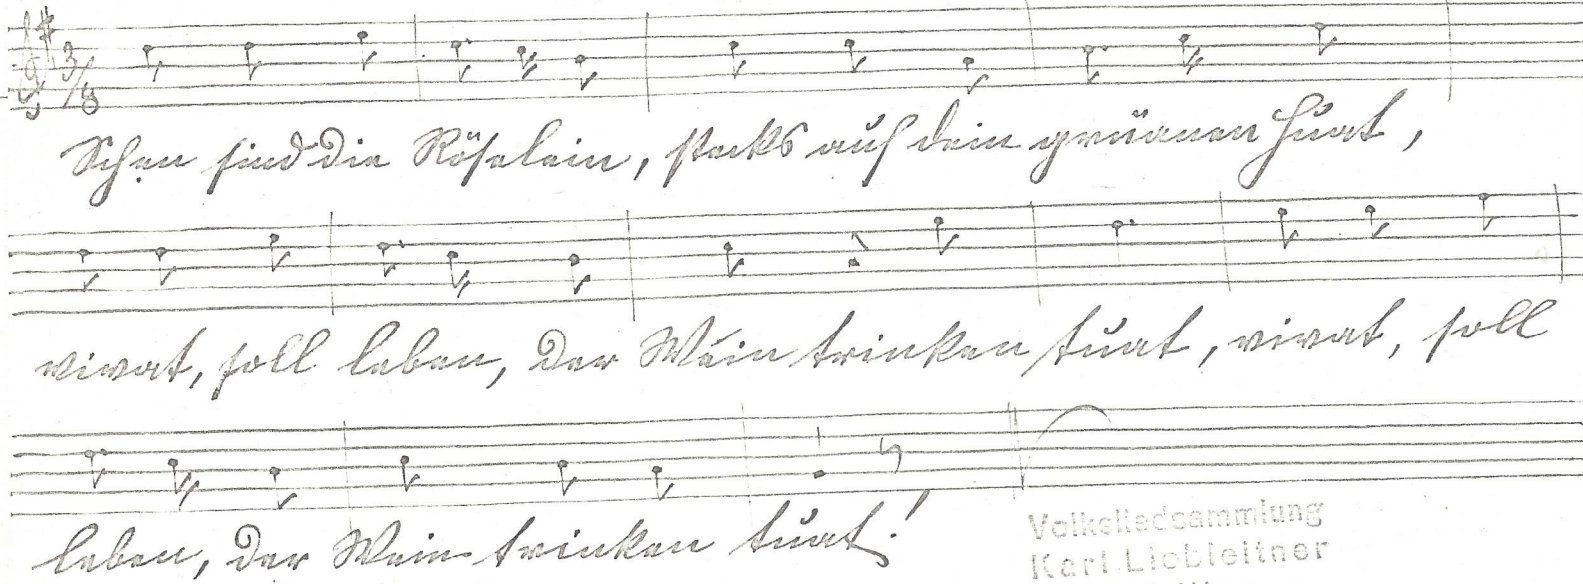 3/8
Schen sind die Röselein, stecks auf dein grüanen Huat,
vivat, soll leben, der Wein trinken tuat, vivat, soll
leben, der Wein trinken tuat!
Volksliedsammlung
Karl Liebleitner